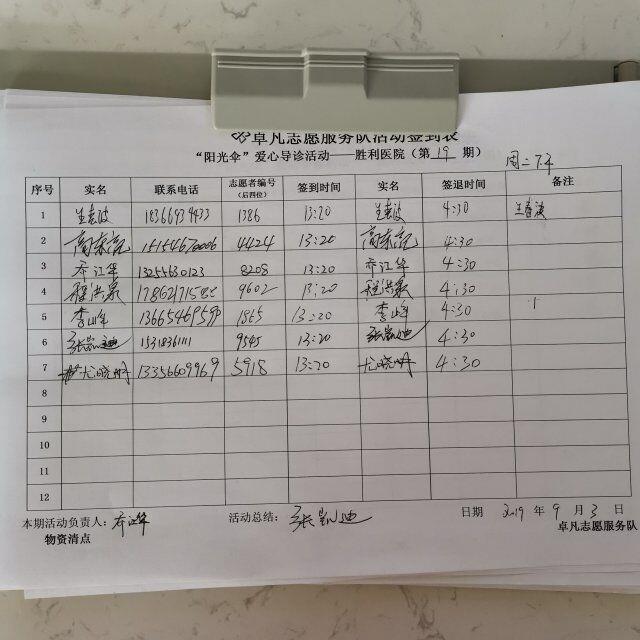 卓凡志愿服务队活动签到表
“阳光伞”爱心导诊活动——胜利医院(第 19 期) 周二下午
序号 实名 联系电话 志愿者编号(后四位) 签到时间 实名 签退时间 备注
1 18366939433 1386 13:20 4:30
2 15154670006 4424 13:20 4:30
3 乔江华 13255630123 8208 13:20 乔江华 4:30
4 程洪泉 9602 13:20 程洪泉 4:30
5 李峰 1865 13:20 李峰 4:30
6 张凯迪 1531836111 9545 13:20 张凯迪 4:30
7 尤晓明 13356609969 5918 13:20 尤晓明 4:30
8
9
10
11
12
本期活动负责人:乔江华 活动总结:张凯迪 日期 2019 年 9 月 3 日
物资清点 卓凡志愿服务队